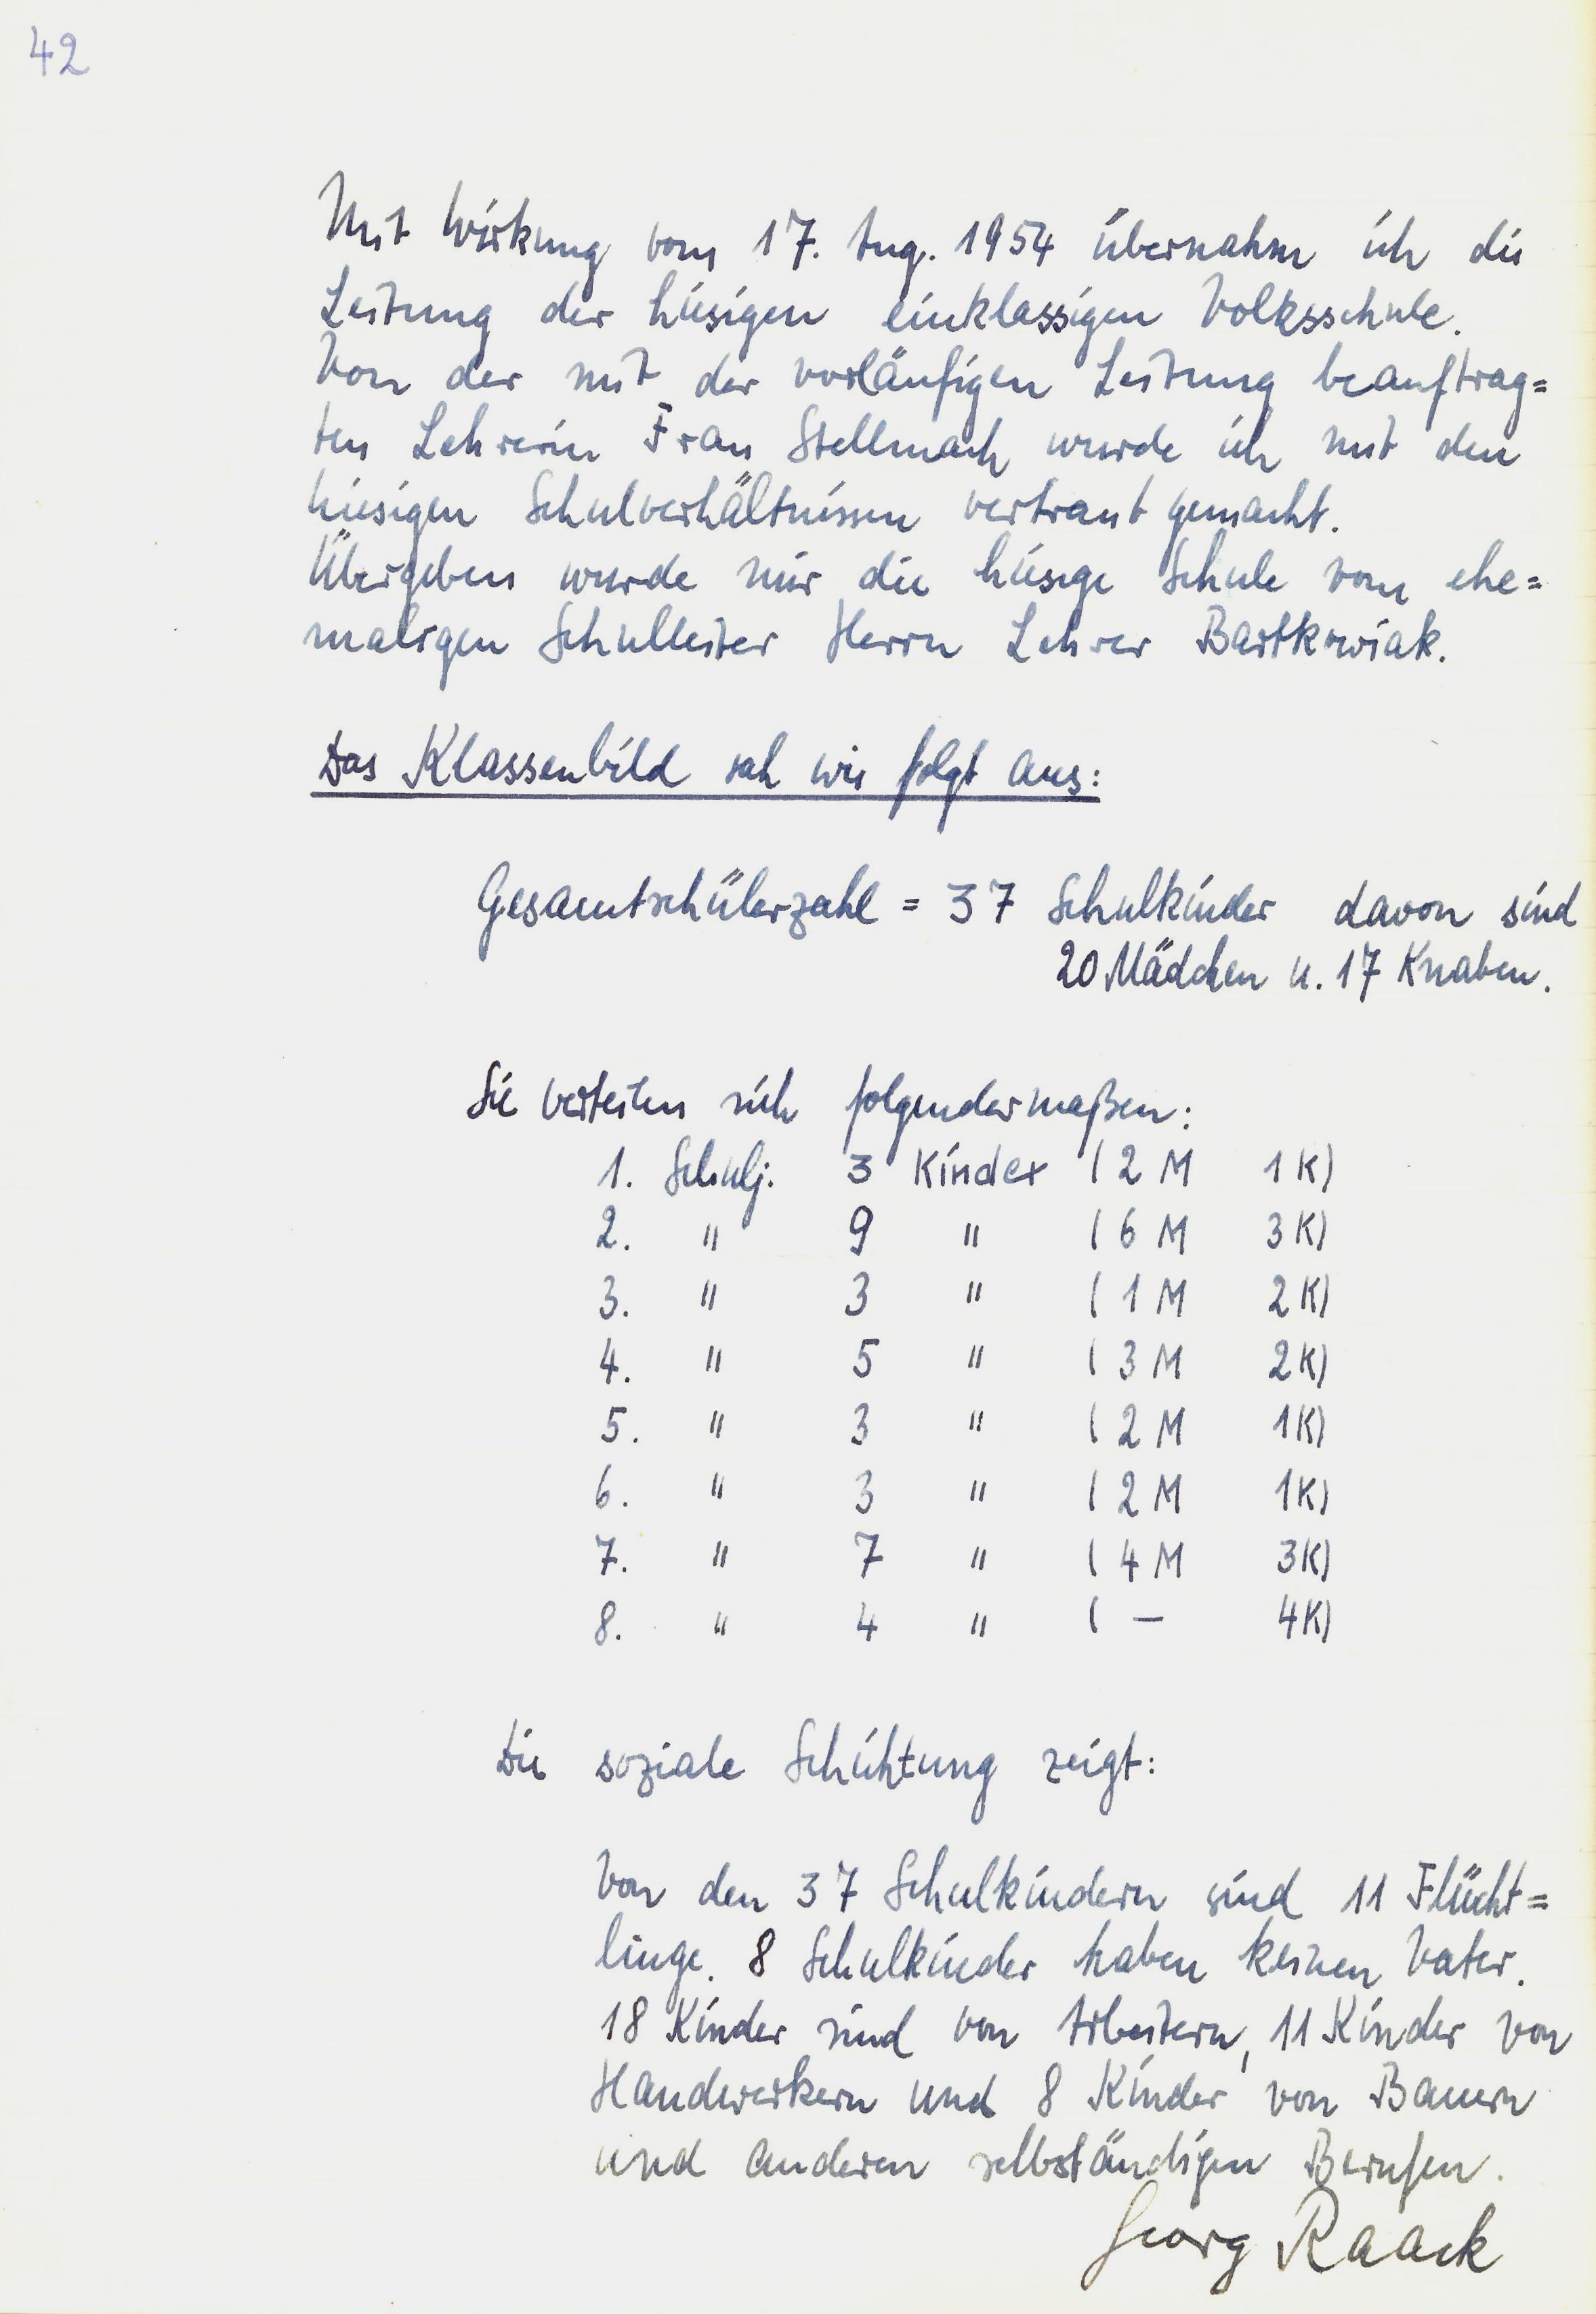 42
Mit Wirkung vom 17. Aug. 1954 übernahm ich die
Leitung der hiesigen einklassigen Volksschule.
Von der mit der vorläufigen Leitung beauftrag=
ten Lehrerin Frau Stellmach wurde ich mit den
hiesigen Schulverhältnissen vertraut gemacht.
Übergeben wurde mir die hiesige Schule vom ehe=
maligen Schulleiter Herrn Lehrer Bartkowiak.
Das Klassenbild sah wie folgt aus:
Gesamtschülerzahl = 37 Schulkinder davon sind
20 Mädchen u. 17 Knaben.
Sie verteilen sich folgendermaßen:
1. Schulj. 3 Kinder ( 2 M 1 K)
2. " 9 " ( 6 M 3 K)
3. " 3 " ( 1 M 2 K)
4. " 5 " ( 3 M 2 K)
5. " 3 " ( 2 M 1 K)
6. " 3 " ( 2 M 1 K)
7. " 7 " ( 4 M 3 K)
8. " 4 " ( — 4 K)
Die soziale Schichtung zeigt:
Von den 37 Schulkindern sind 11 Flücht=
linge. 8 Schulkinder haben keinen Vater.
18 Kinder sind von Arbeitern, 11 Kinder von
Handwerkern und 8 Kinder von Bauern
und anderen selbständigen Berufen.
Georg Raack